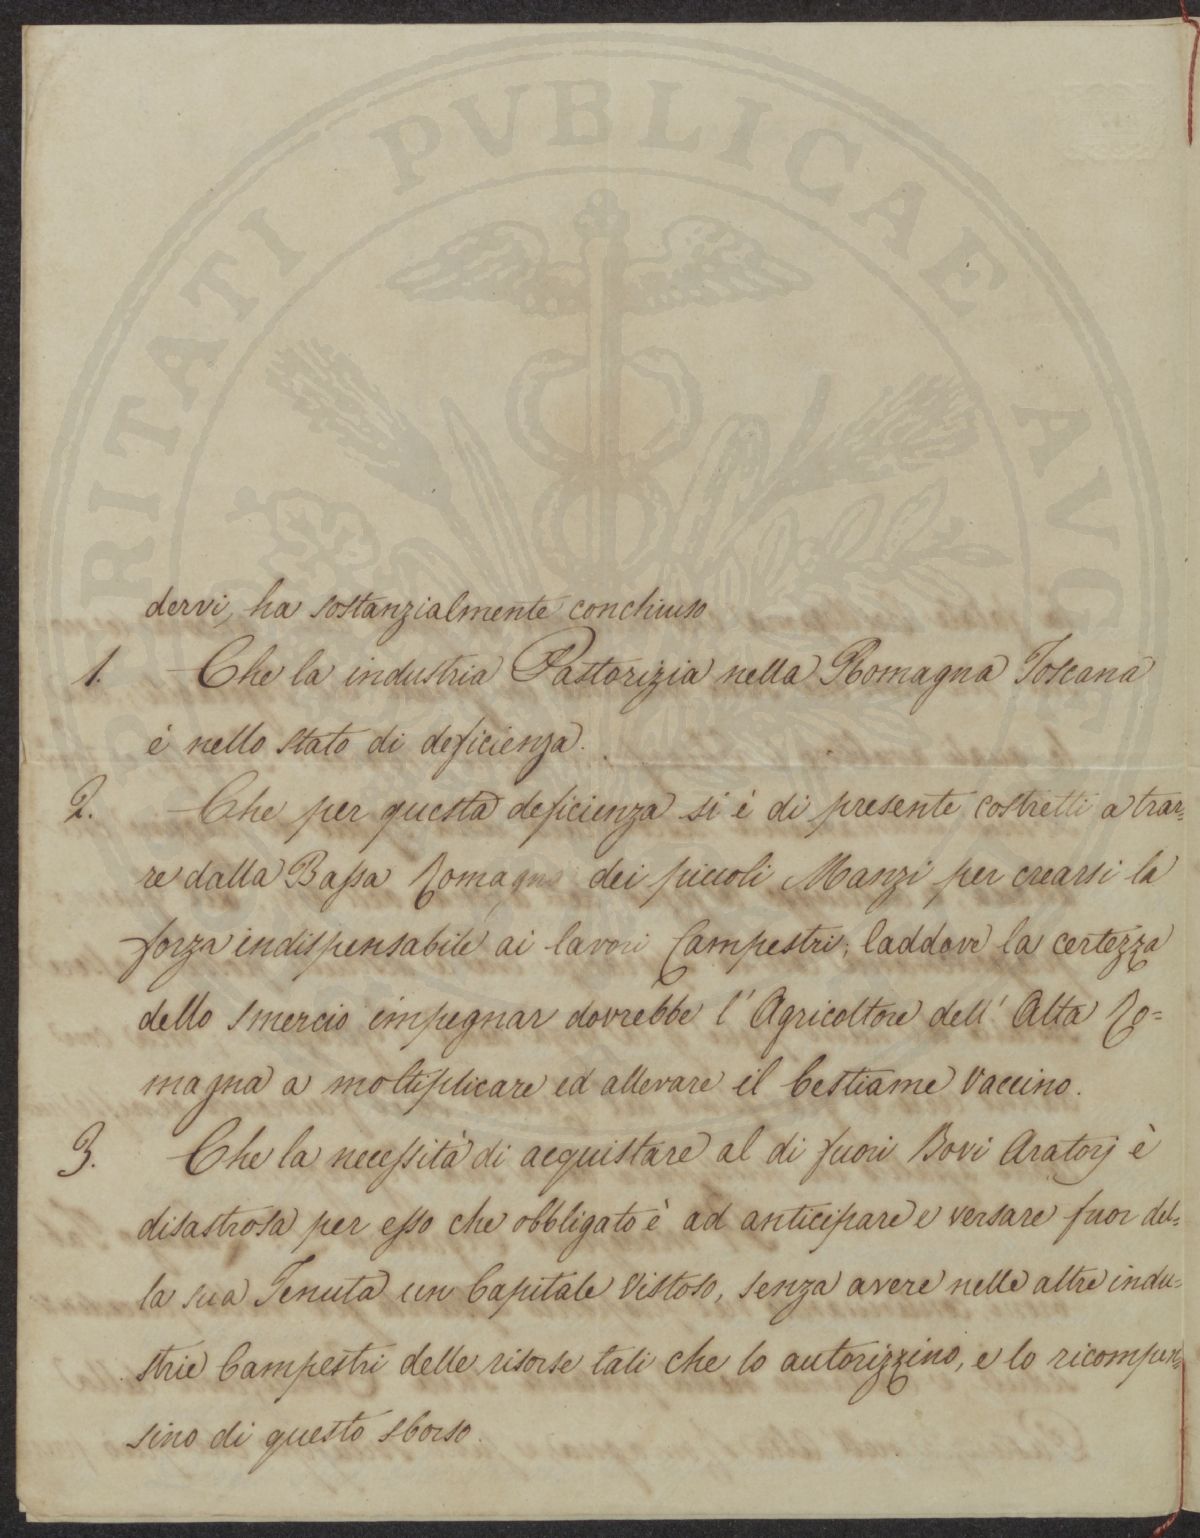 PROSPERITATI PVBLICAE AVGENDAE
dervi, ha sostanzialmente conchiuso
1. Che la industria Pastorizia nella Romagna Toscana
è nello stato di deficienza.
2. Che per questa deficienza si è di presente costretti a trar=
re dalla Bassa Romagna dei piccoli Manzi per crearsi la
forza indispensabile ai lavori Campestri, laddove la certezza
dello smercio impegnar dovrebbe l'Agricoltore dell'Alta Ro=
magna a moltiplicare ed allevare il bestiame Vaccino.
3. Che la necessità di acquistare al di fuori Bovi Aratorj è
disastrosa per esso che obbligato è ad anticipare e versare fuor del=
la sua Tenuta un Capitale Vistoso, senza avere nelle altre indu=
strie Campestri delle risorse tali che lo autorizzino, e lo ricompen=
sino di questo sborso.